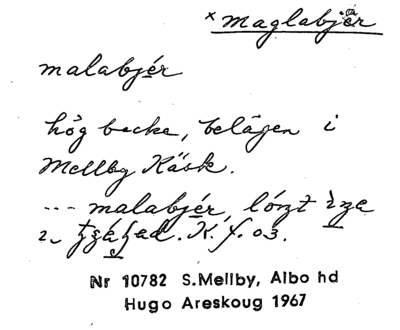 × maglabjär
malabjér
hög backe, belägen i
Mellby Käsk.
--- malabjér, lónt
K. f. 03.
Nr 10782 S.Mellby, Albo hd
Hugo Areskoug 1967